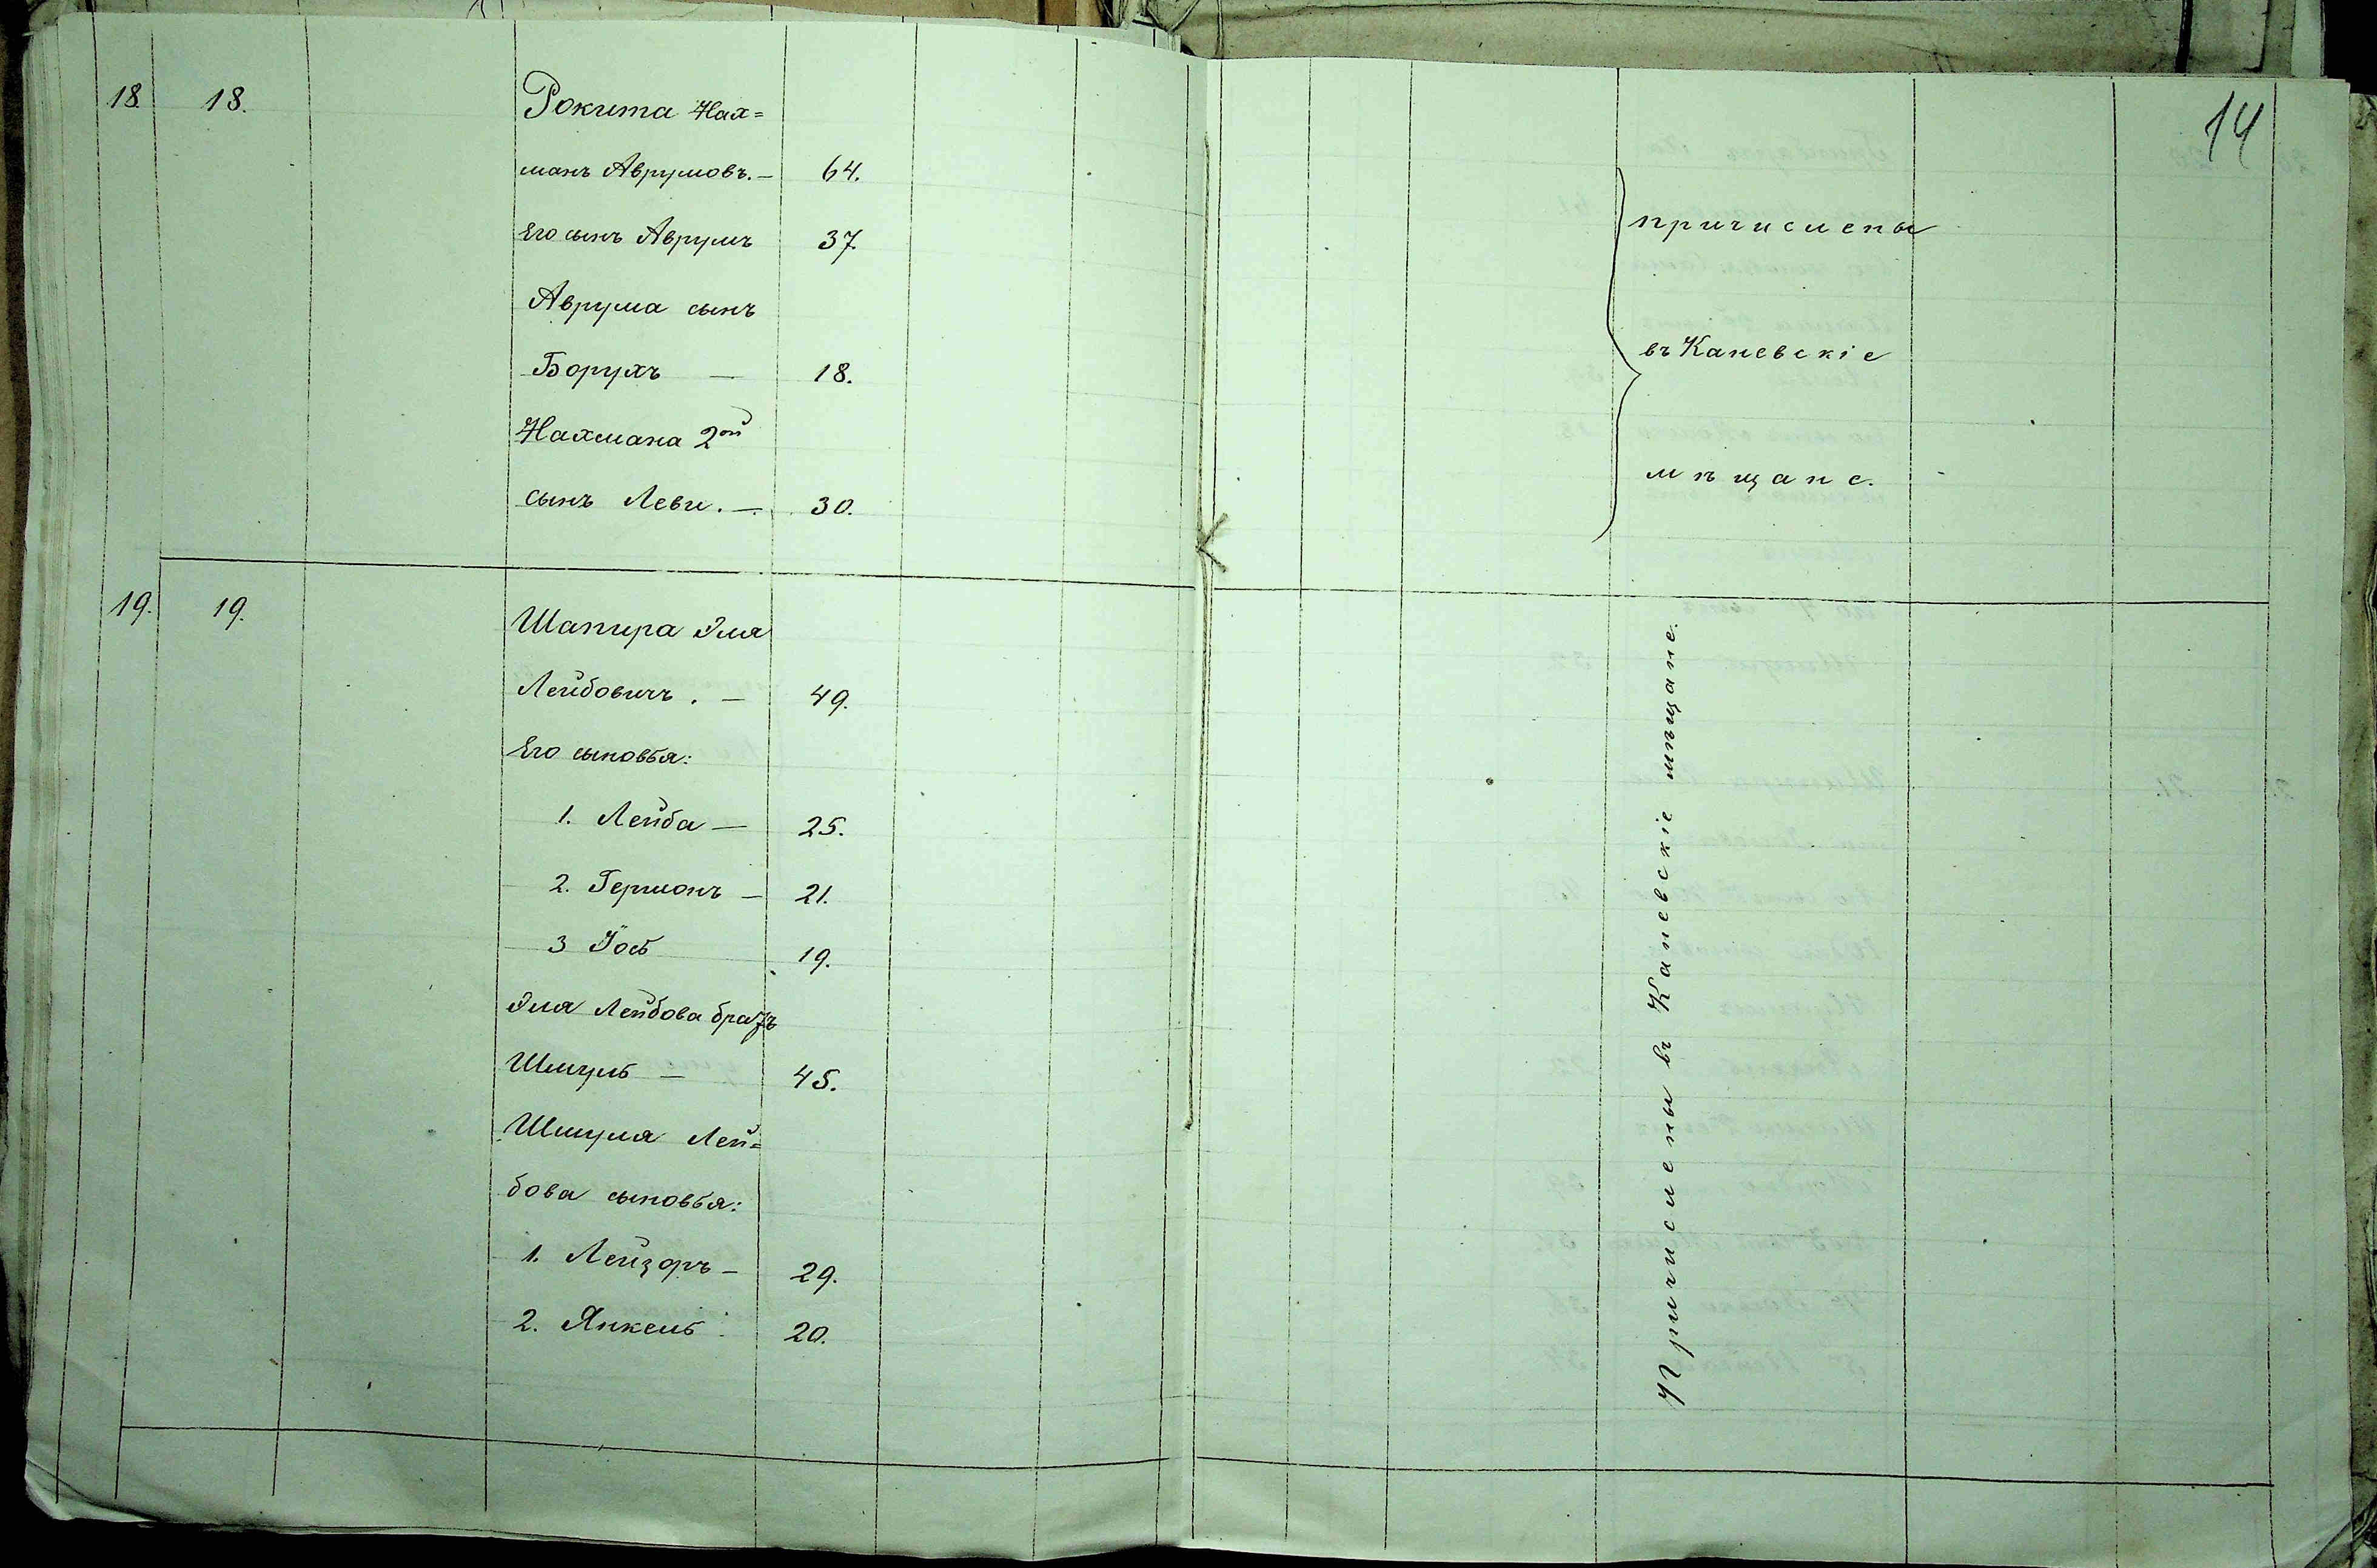 14
18. 18. Рокита Нах=
манъ Аврумовъ. — 64.
Его сынъ Аврумъ 37
Аврума сынъ
Борухъ — 18.
Нахмана 2ой
сынъ Леви. — 30.
причислены
въ Каневскіе
мѣщане.
19. 19. Шапира Эля
Лейбовичъ. — 49.
Его сыновья:
1. Лейба — 25.
2. Гершонъ — 21.
3 Іось 19.
Эля Лейбова братъ
Шмуль — 45.
Шмуля Лей=
бова сыновья:
1. Лейзоръ — 29.
2. Янкель 20.
Причислены въ Каневскіе мѣщане.